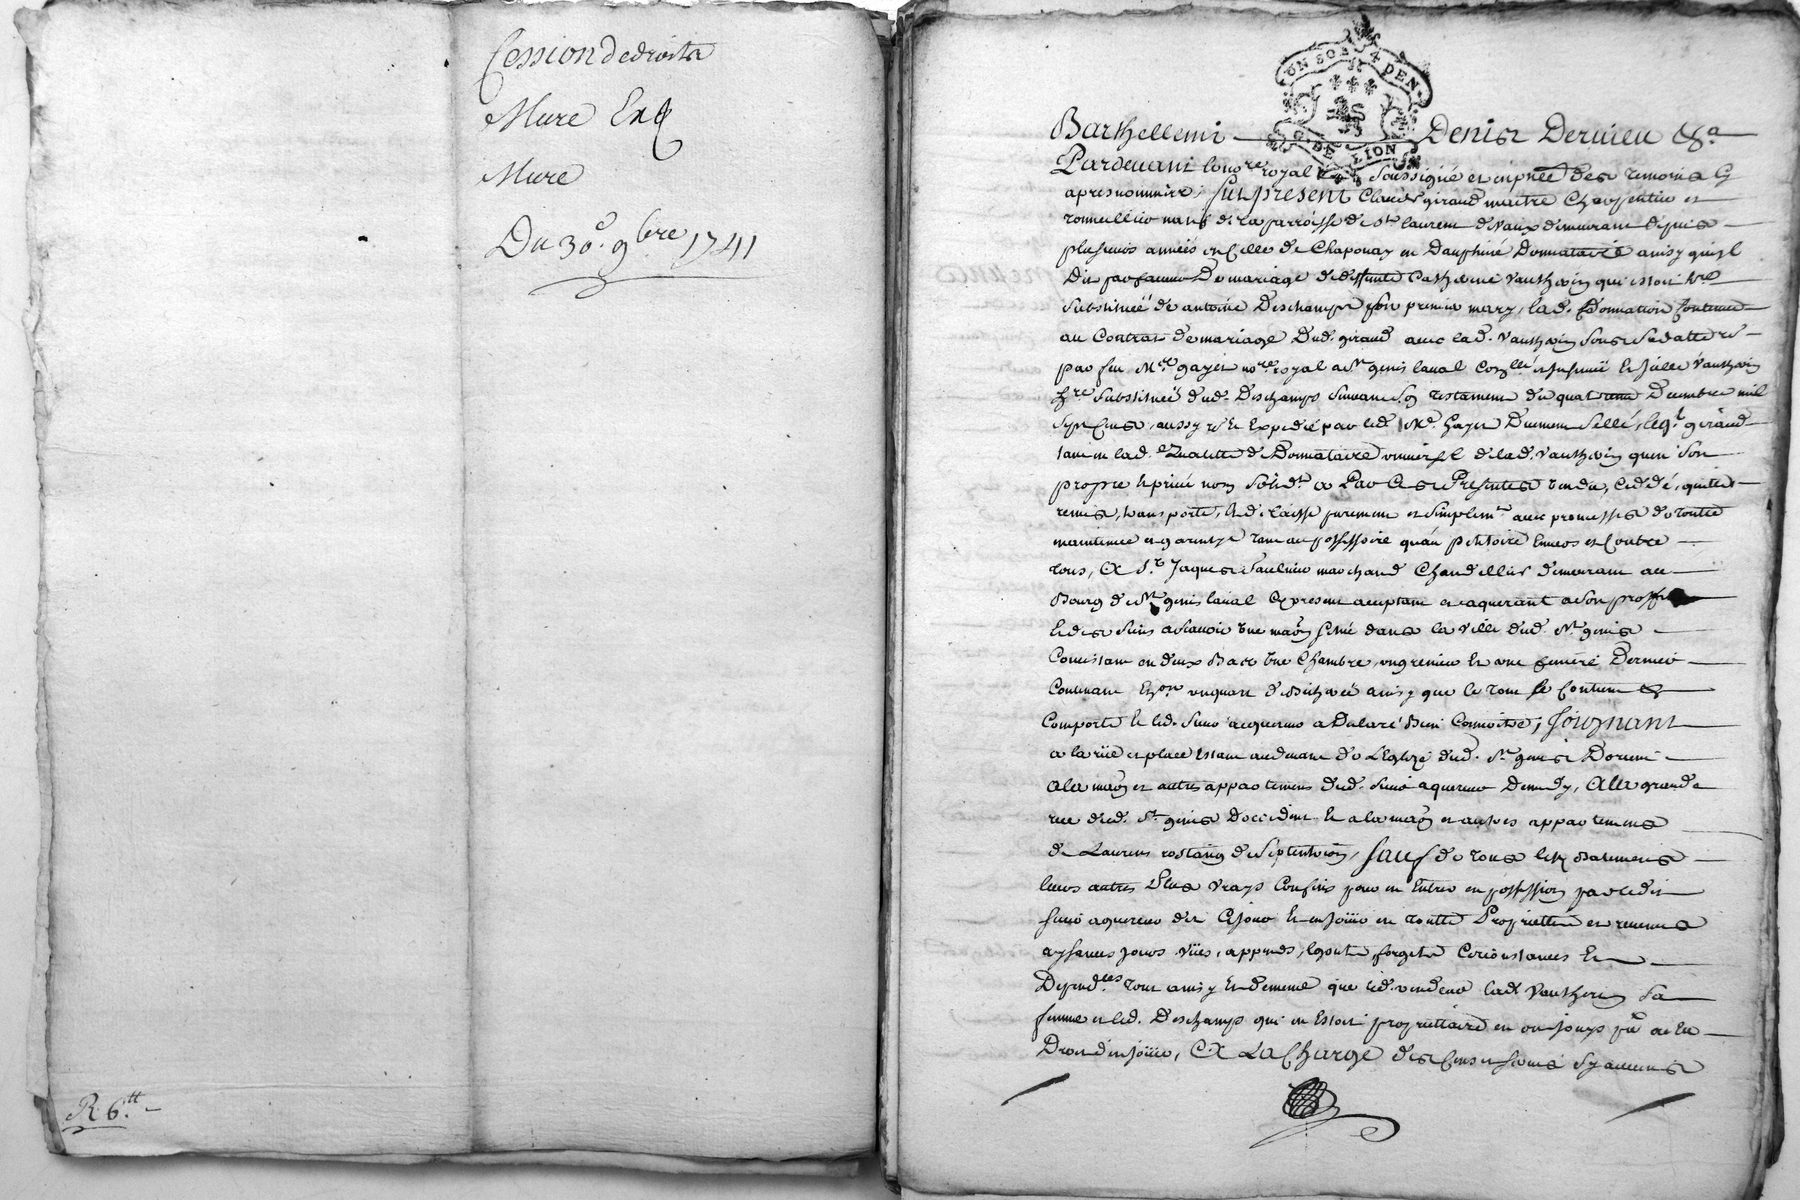 Cession de droits
Mure Et
Mure
Du 30e. 9bre 1741
R 6.tt
UN SOL 4 DEN
G. DE LION
Barthellemi Denis Dervieu &a
Pardevant le no.re royal soussigné et en pnce des temoins cy
apres nommés, fut present Claude giraud maitre Charpentier et
natif de la parroisse de st. laurent de vaux demeurant depuis
plusieurs années en celle de Chaponay en Dauphiné Donnataire ainsy quil
Dit par Contrat De mariage de deffunte Catherine Vautherin qui estoit h.re
substituée de antoine Deschamps son premier mary, lad. Donnation Contenue
au Contrat de mariage dud. giraud avec lad. Vautherin sous sa datte re
par feu M.re gayet no.re royal a St. genis laval et icelle Vautherin
h.re substituée dud. Deschamps suivant son testament du quatre Decembre mil
sept Cents, aussy re et Expedié par led. Me. Gayet Duement scellé, leq.l giraud
tant en lad. Qualitté de Donnataire universel de lad. Vautherin quen son
propre et privé nom solid.t a Par Ces Presentes vendu, ceddé, quitté
remis, transporté, et delaissé purement et simplem.t avec promesses de toutte
maintenue et garentye tant au possessoire quau petitoire Envers et Contre
tous, A Sr. Jaques Saulnier marchand Chandellier demeurant au
Bourg de St. genis laval Cy present acceptant et aquerant a son proffit
et des siens a scavoir une maison scitué dans la ville dud. St. genis
Consistant en deux Bas une Chambre, un grenier et une Derrier
Contenant Environ un quart de Bicherée ainsy que le tout se Contient &
Comporte et led. sieur acquereur a Declaré Bien Connoitre, Joignant
a la rue et place Estant au devant de LEglize dud. St. genis Dorient
a la maison et autres appartemens dud. sieur aquereur De midy, A la grande
rue dud. St. genis Doccident et a la maison et autres appartemens
de Laurens rostaing de septentrion, sauf de tous les Batimens
leurs autres plus vrays Confins pour en Entrer en possession par ledit
sieur aquereur des A jour et en jouir en toutte Proprietté et revenus
aysances jours vues, appends, Egouts, forgets Circonstances Et
Depend.ces tout ainsy et de meme que led. vendeur lad. Vautherin sa
femme et led. Deschamps qui en Estoit proprietaire en ont jouys pu ou Eu
Droit d'en jouir, A La Charge des Cens et servis sy aucuns